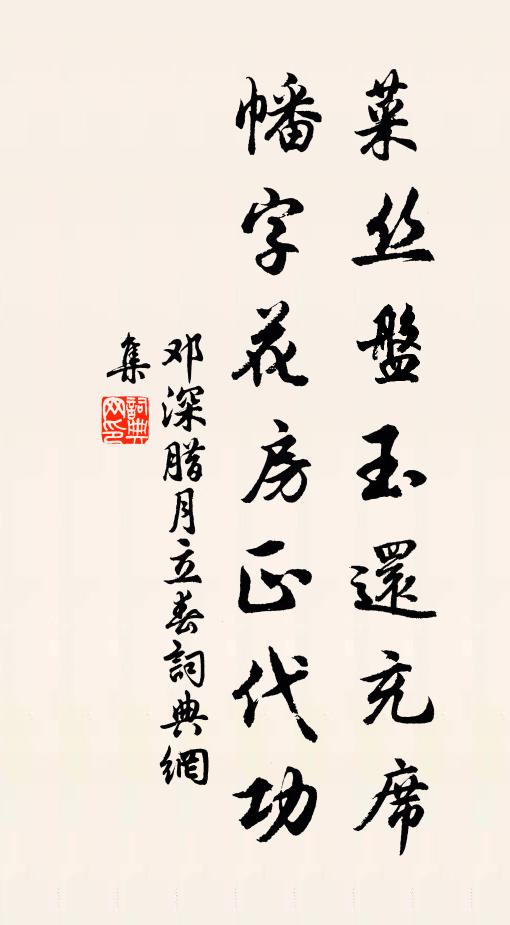 菜丝盤玉還充席
幡字花房正代功
邓深腊月立春詞典網
集
詞典网印